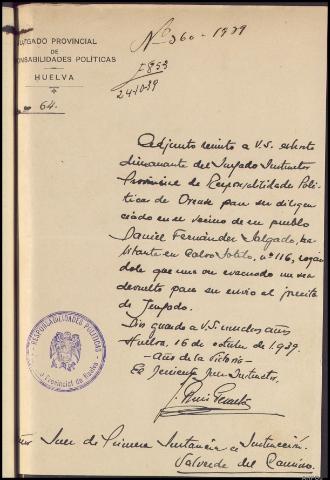 JUZGADO PROVINCIAL
DE
RESPONSABILIDADES POLÍTICAS
HUELVA
64.
Nº 360-1939
E 853
24-10-39
Adjunto remito a V.S. exhorto
dimanante del Juzgado Instructor
Provincial de Responsabilidades Polí-
ticas de Orense para ser diligen-
ciado en el vecino de ese pueblo
Daniel Fernández Salgado, ha-
bitante en Calvo Sotelo, nº 116, rogán-
dole que una vez evacuado me sea
devuelto para su envío al
Juzgado.
Dios guarde a V.S. muchos años
Huelva, 16 de octubre de 1939.
-Año de la Victoria-
El Teniente Juez Instructor.
RESPONSABILIDADES POLITICAS
o Provincial de Huelva
Juez de Primera Instancia e Instrucción.
Valverde del Camino.